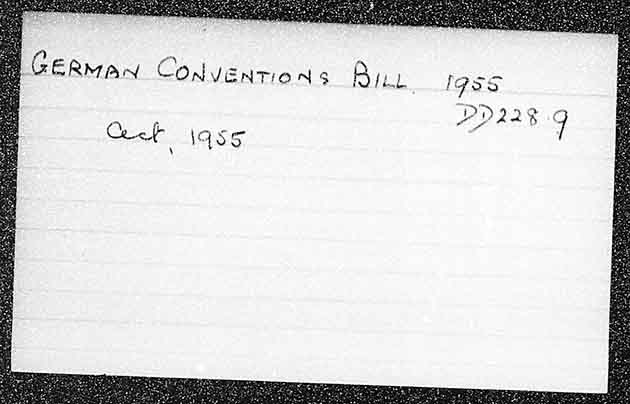 GERMAN CONVENTIONS BILL. 1955
DD228.9
Act, 1955